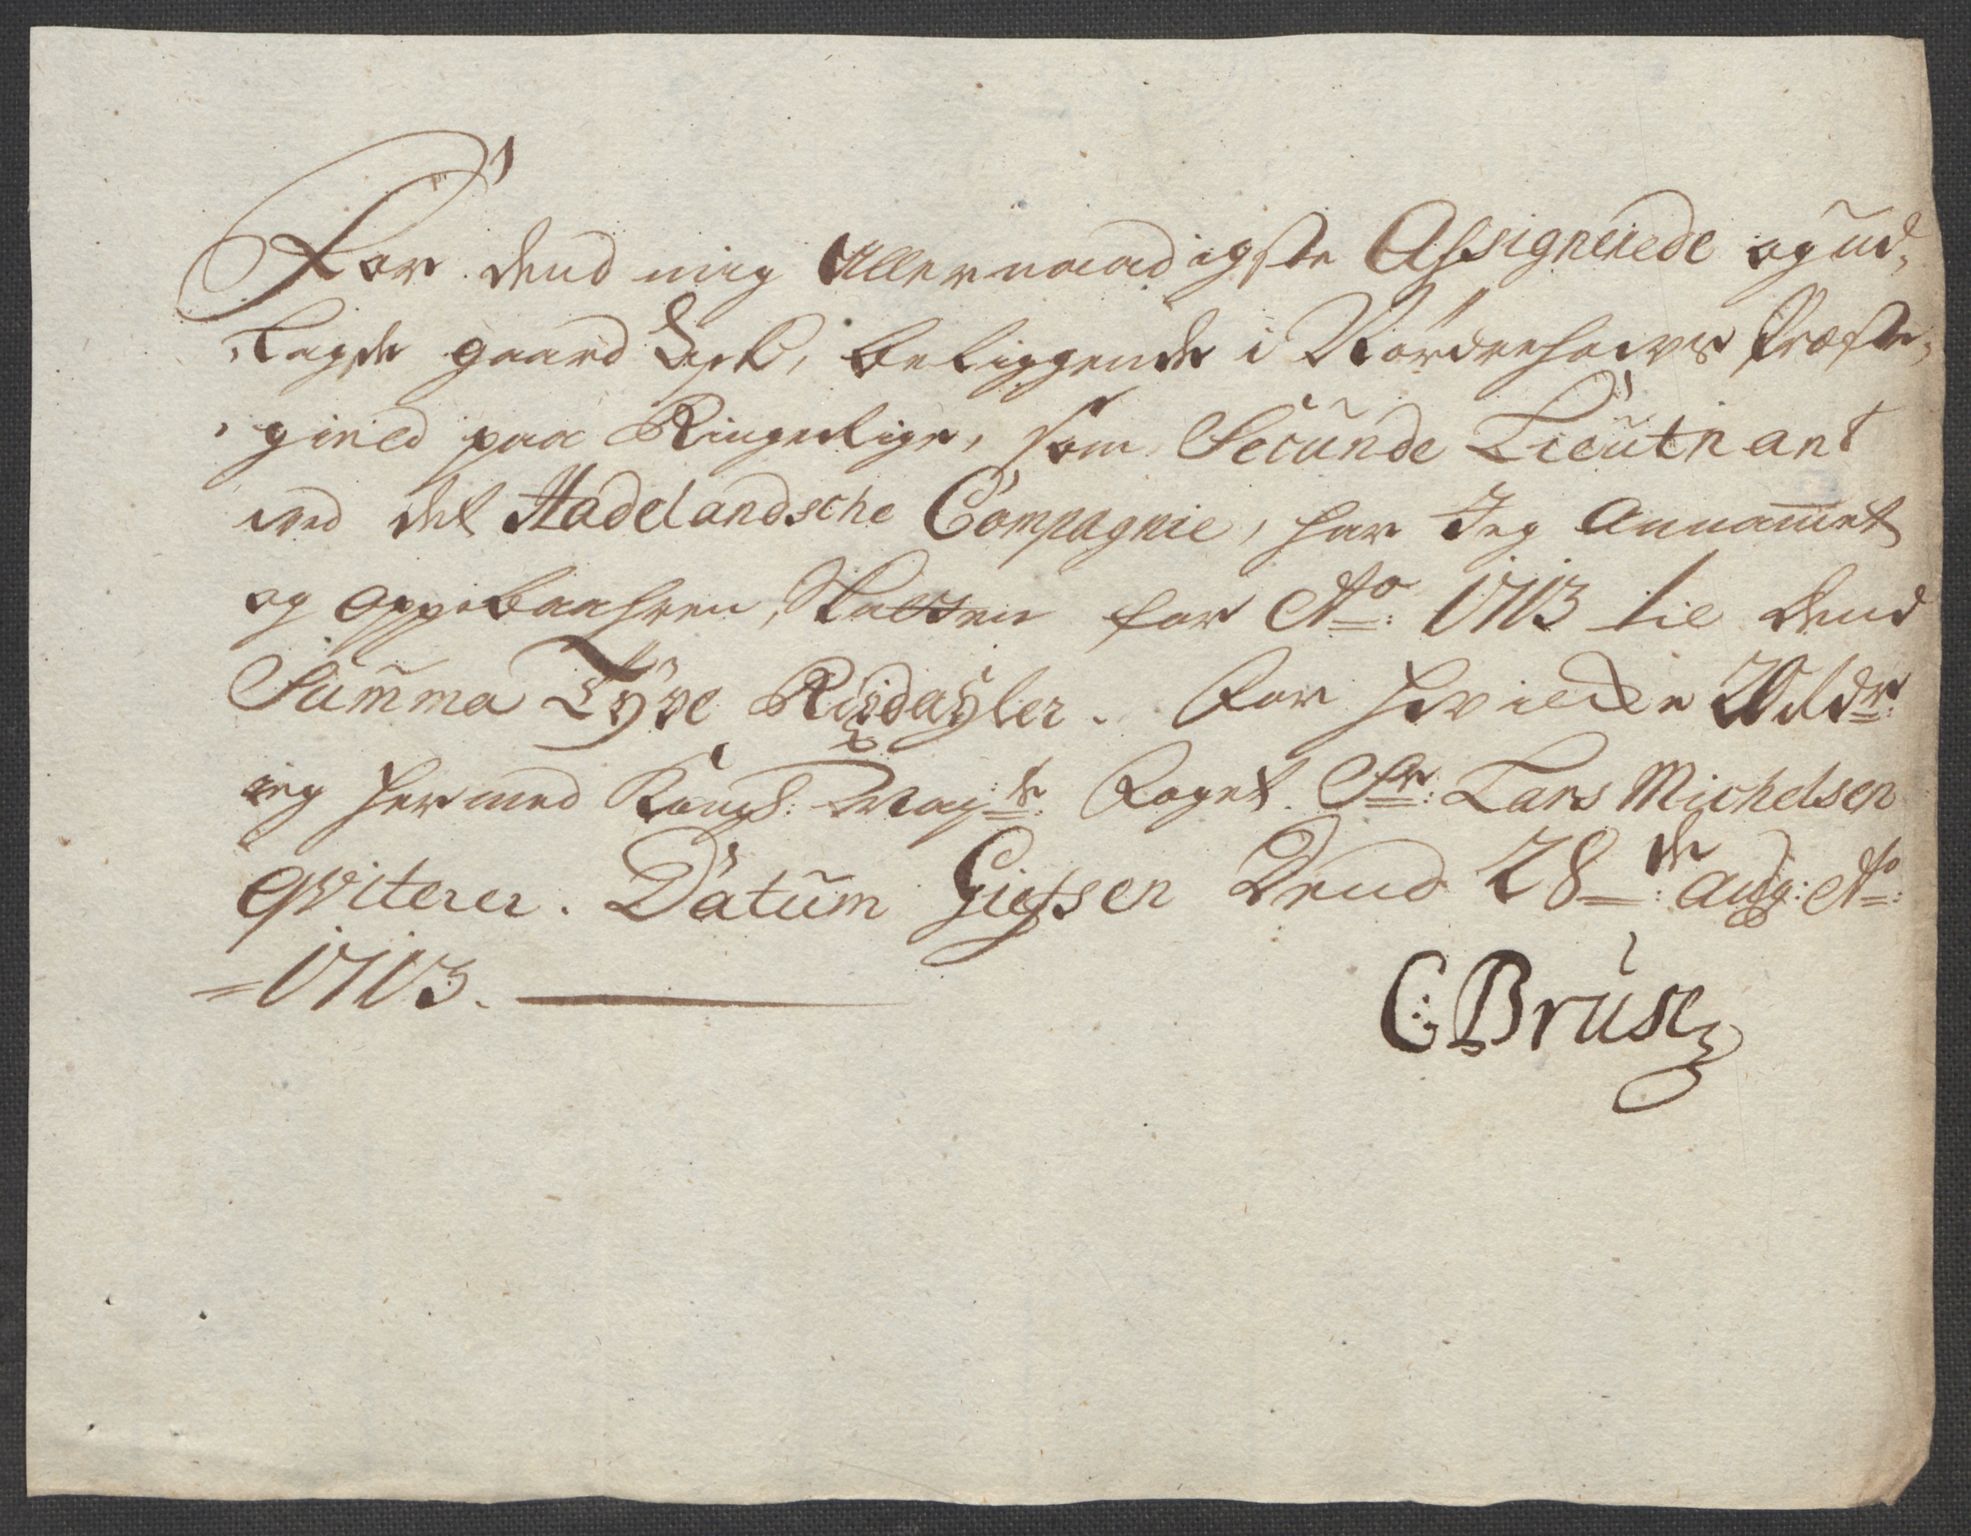 For dend mig Allernaadigste Assignerede og ud-
lagde gaard beliggende i Nordrehoevs Præste-
gield paa Ringerige, som Secunde Lieutnant
ved det Hadelandsche Compagnie, har Jeg Annammet
og oppebaahren, for Ao: 1713 til dend
Summa Tyve Rixdahler. For hvilcke 20 Rdr:
ieg hermed Kongl: Maj:ts Foget Sr: Lars Michelsen
qviterer. Datum Giessen Dend 28de: Aug: Ao:
=1713.
C: Bruse